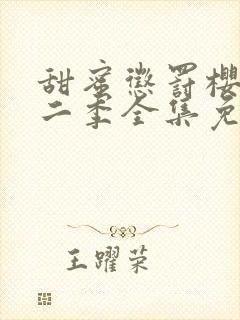 甜蜜惩罚樱
二季全集免
王躍荣